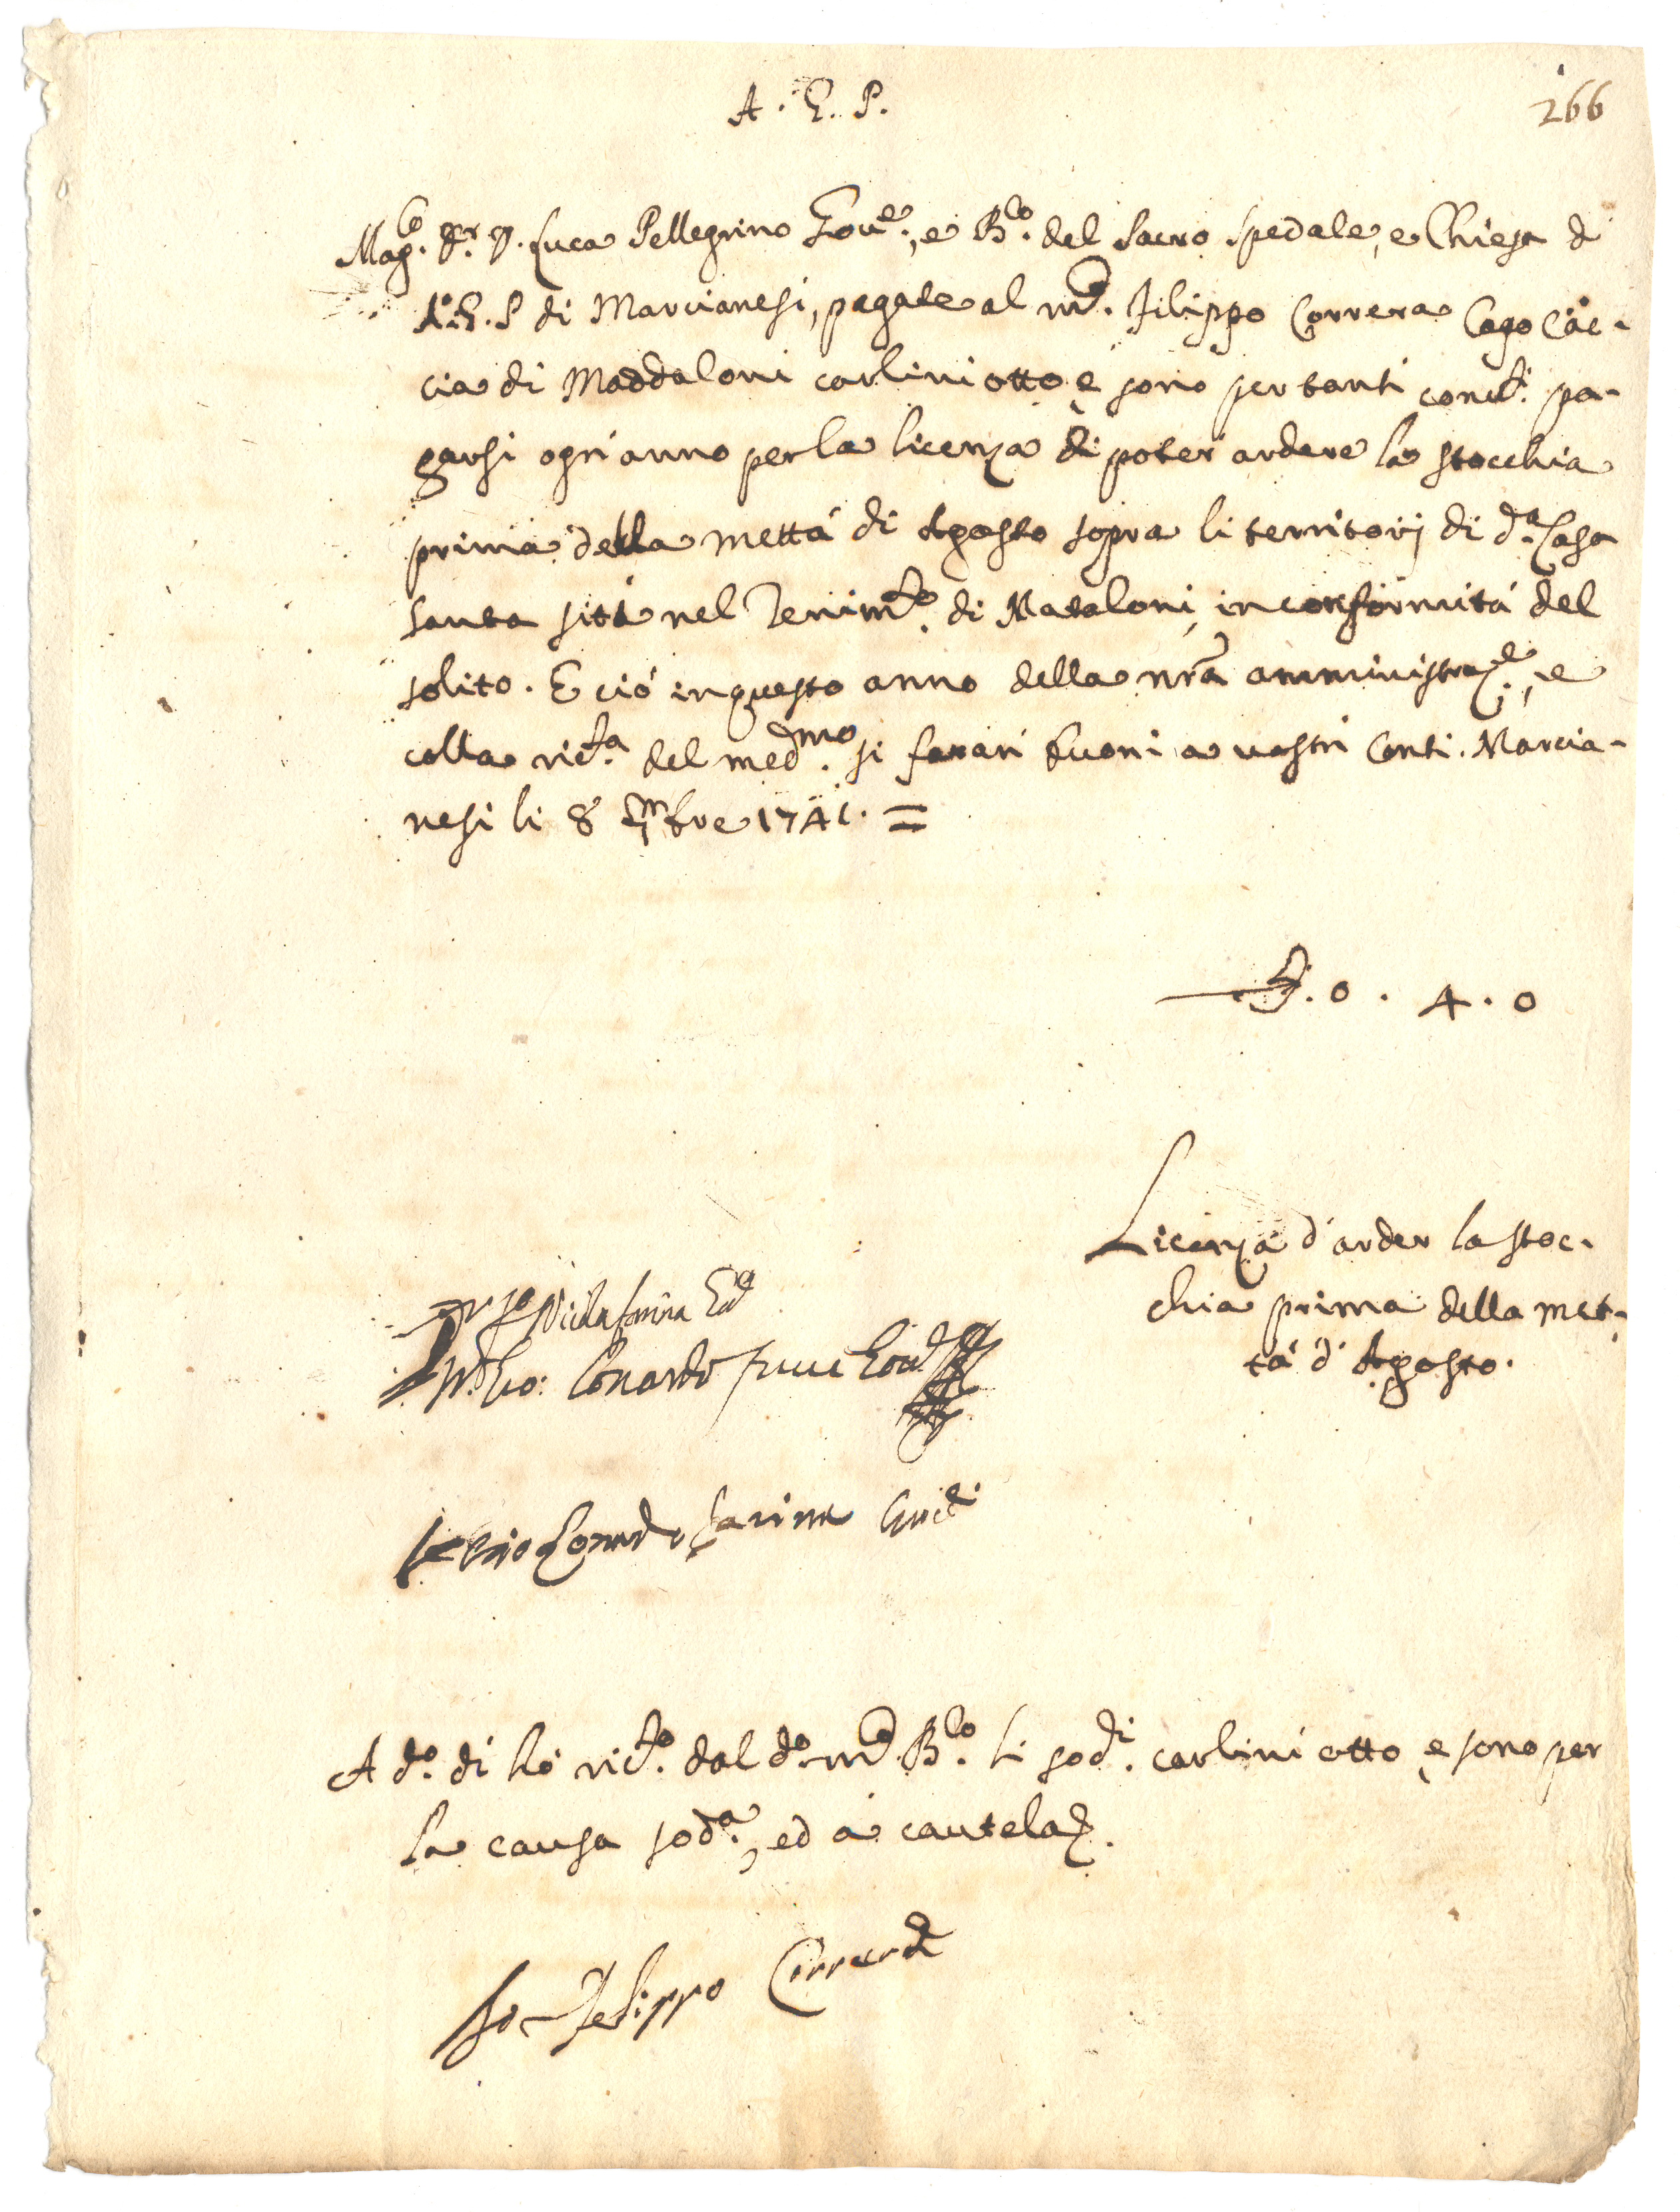 A. G. P.
266
Mag.co Sr. D. Luca Pellegrino Gov.e, e B.lo del Sacro Spedale, e Chiesa di
A. G. P di Marcianesi, pagate al m.co Filippo Correra Capo Cac-
cia di Maddaloni carlini otto e sono per tanti pa-
garsi ogn'anno per la licenza di poter ardere la stocchia
prima della mettá di Agosto sopra li territorj di d.a Casa
santa siti nel Tenim.to di Mataloni, in conformitá del
solito. E ció in questo anno della nr̃a amministraz.e, e
colla ric.ta del med.mo si faran buoni a vostri Conti. Marcia-
nesi li 8 bre 1741. =
D. 0. 4. 0
Licenza d'arder la stoc-
chia prima della met-
tá d'Agosto.
Nicola
Lonardo
Io Lonardo Farina
A d.o di hó ric.to dal d.o m.co B.lo li sod.i carlini otto e sono per
la causa sod.a, ed a cautela
Io Felippo Correra